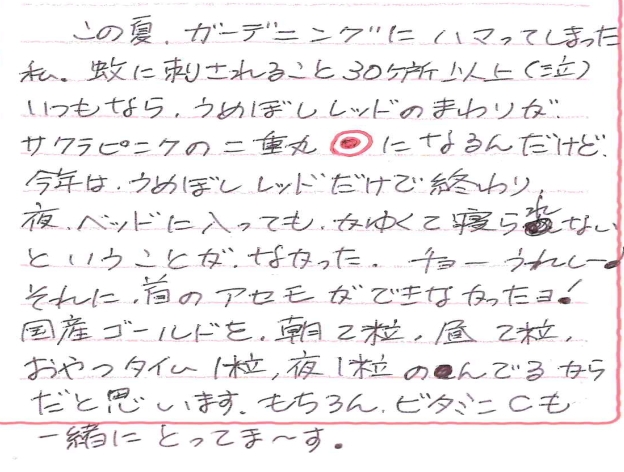 この夏、ガーデニングにハマってしまった
私。蚊に刺されること30ヶ所以上(泣)
いつもなら、うめぼしレッドのまわりが、
サクラピンクの二重丸 に なるんだけど、
今年は、うめぼしレッドだけで終わり、
夜、ベッドに入っても、かゆくて寝られない
ということが、なかった。チョーうれしー!
それに、首のアセモができなかったヨ!
国産ゴールドを、朝2粒、昼2粒、
おやつタイム1粒、夜1粒のんでるから
だと思います。もちろん、ビタミンCも
一緒にとってま〜す。